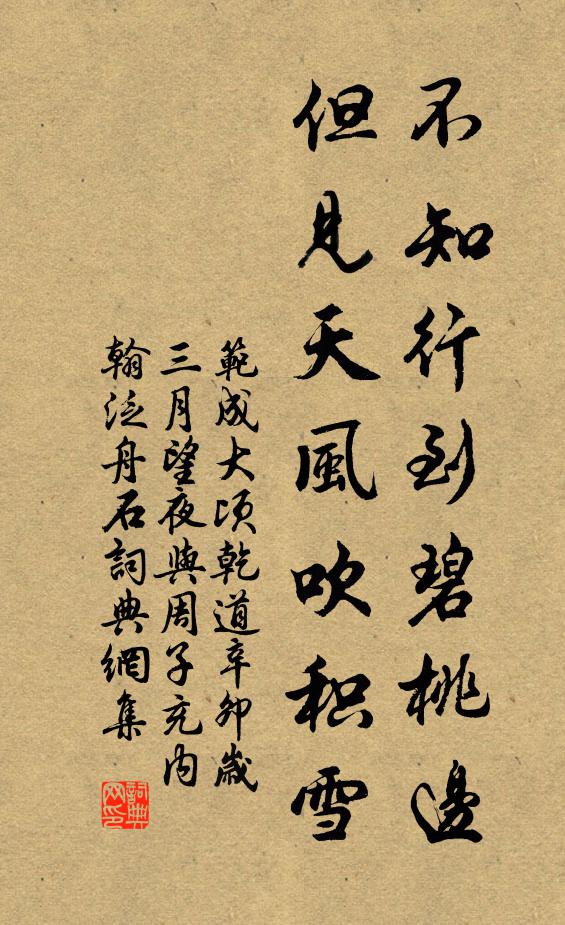 不知行到碧桃邊
但見天風吹积雪
範成大頃乾道辛卯歲
三月望夜與周子充內
翰泛舟石詞典網集
詞典
网印